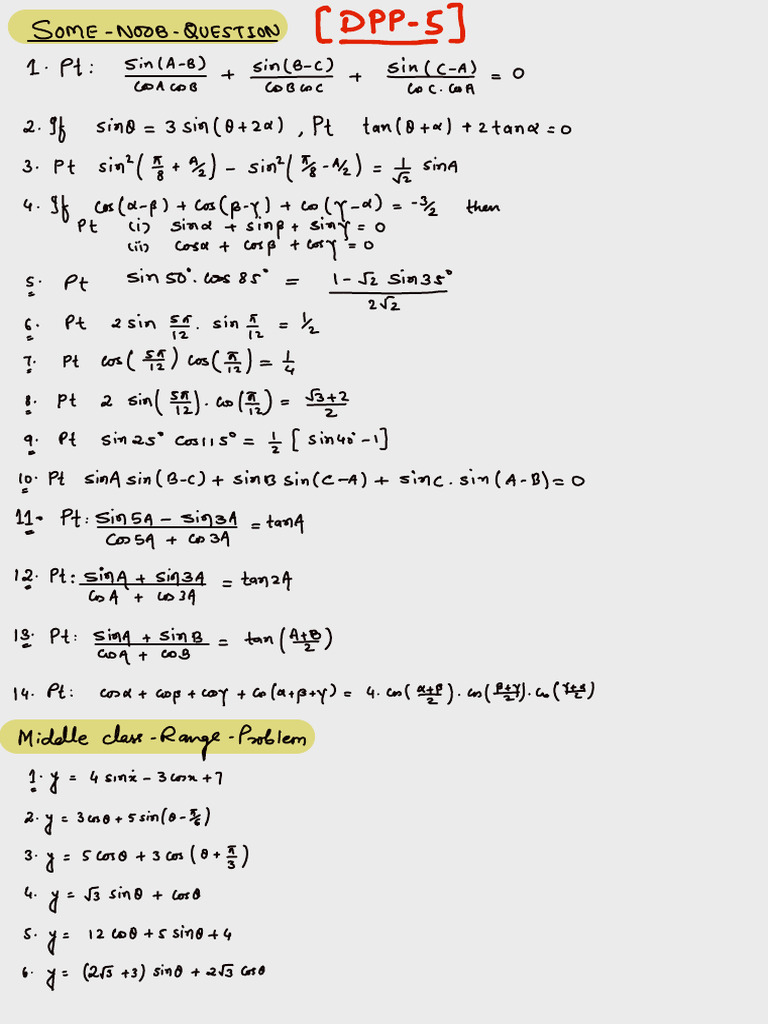 SOME-NOOB-QUESTION [DPP-5]
1. Pt: sin(A-B)/cosA cosB + sin(B-C)/cosBcosC + sin(C-A)/cosC.cosA = 0
2. If sinθ = 3 sin(θ+2α), Pt tan(θ+α) + 2tanα = 0
3. Pt sin²(π/8 + A/2) - sin²(π/8 - A/2) = 1/√2 sinA
4. If cos(α-β) + cos(β-γ) + cos(γ-α) = -3/2 then
Pt (i) sinα + sinβ + sinγ = 0
(ii) cosα + cosβ + cosγ = 0
5. Pt sin50°.cos85° = (1-√2 sin35°)/2√2
6. Pt 2sin 5π/12 . sin π/12 = 1/2
7. Pt cos(5π/12) cos(π/12) = 1/4
8. Pt 2 sin(5π/12).cos(π/12) = (√3+2)/2
9. Pt sin25° cos115° = 1/2 [sin40°-1]
10. Pt sinA sin(B-C) + sinB sin(C-A) + sinC.sin(A-B)=0
11. Pt: (sin5A - sin3A)/(cos5A + cos3A) = tanA
12. Pt: (sinA + sin3A)/(cosA + cos3A) = tan2A
13. Pt: (sinA + sinB)/(cosA + cosB) = tan((A+B)/2)
14. Pt: cosα + cosβ + cosγ + cos(α+β+γ) = 4.cos((α+β)/2).cos((β+γ)/2).cos((γ+α)/2)
Middle class-Range-Problem
1. y = 4 sinx - 3cosx + 7
2. y = 3cosθ + 5sin(θ-π/6)
3. y = 5cosθ + 3cos(θ+π/3)
4. y = √3 sinθ + cosθ
5. y = 12 cosθ + 5 sinθ + 4
6. y = (2√3 +3) sinθ + 2√3 cosθ